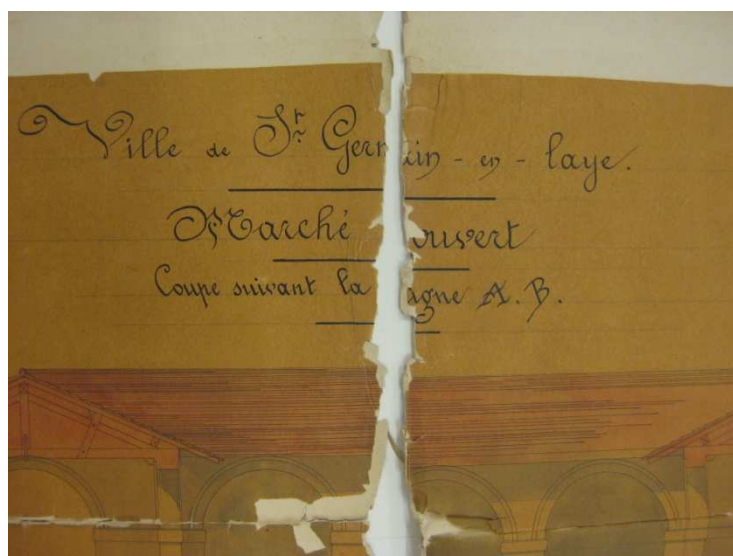 Ville de St Germain - en - laye.
Marché ouvert
Coupe suivant la igne A. B.